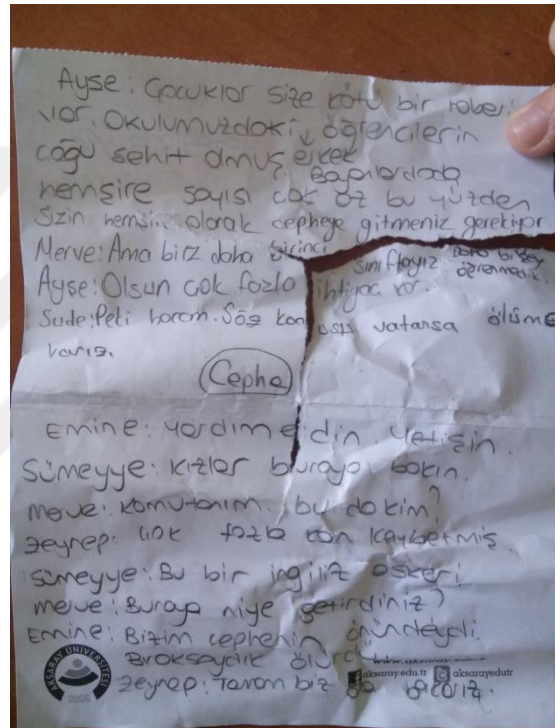 Ayşe: Çocuklar size kötü bir haberi
var. Okulumuzdaki öğrencilerin
çoğu şehit olmuş erkek
Başılarda
hemşire sayısı çok az bu yüzden
Sizin hemşire olarak cepheye gitmeniz gerekiyor
Merve: Ama biz daha birinci sınıftayız daha bir şey öğrenmedik.
Ayşe: Olsun çok fazla ihtiyaç var.
Sude: Peki hocam. Söz konusu vatansa ölüme
varız.
Cephe
Emine: Yardım edin. Yetişin.
Sümeyye: Kızlar buraya bakın.
Merve: Komutanım bu da kim?
Zeynep: Çok fazla kan kaybetmiş
Sümeyye: Bu bir ingiliz askeri
Merve: Buraya niye getirdiniz?
Emine: Bizim cephenin önündeydi.
Bıraksaydık
Zeynep: Tamam biz
AKSARAY ÜNİVERSİTESİ
2006
aksaray.edu.tr aksarayedutr